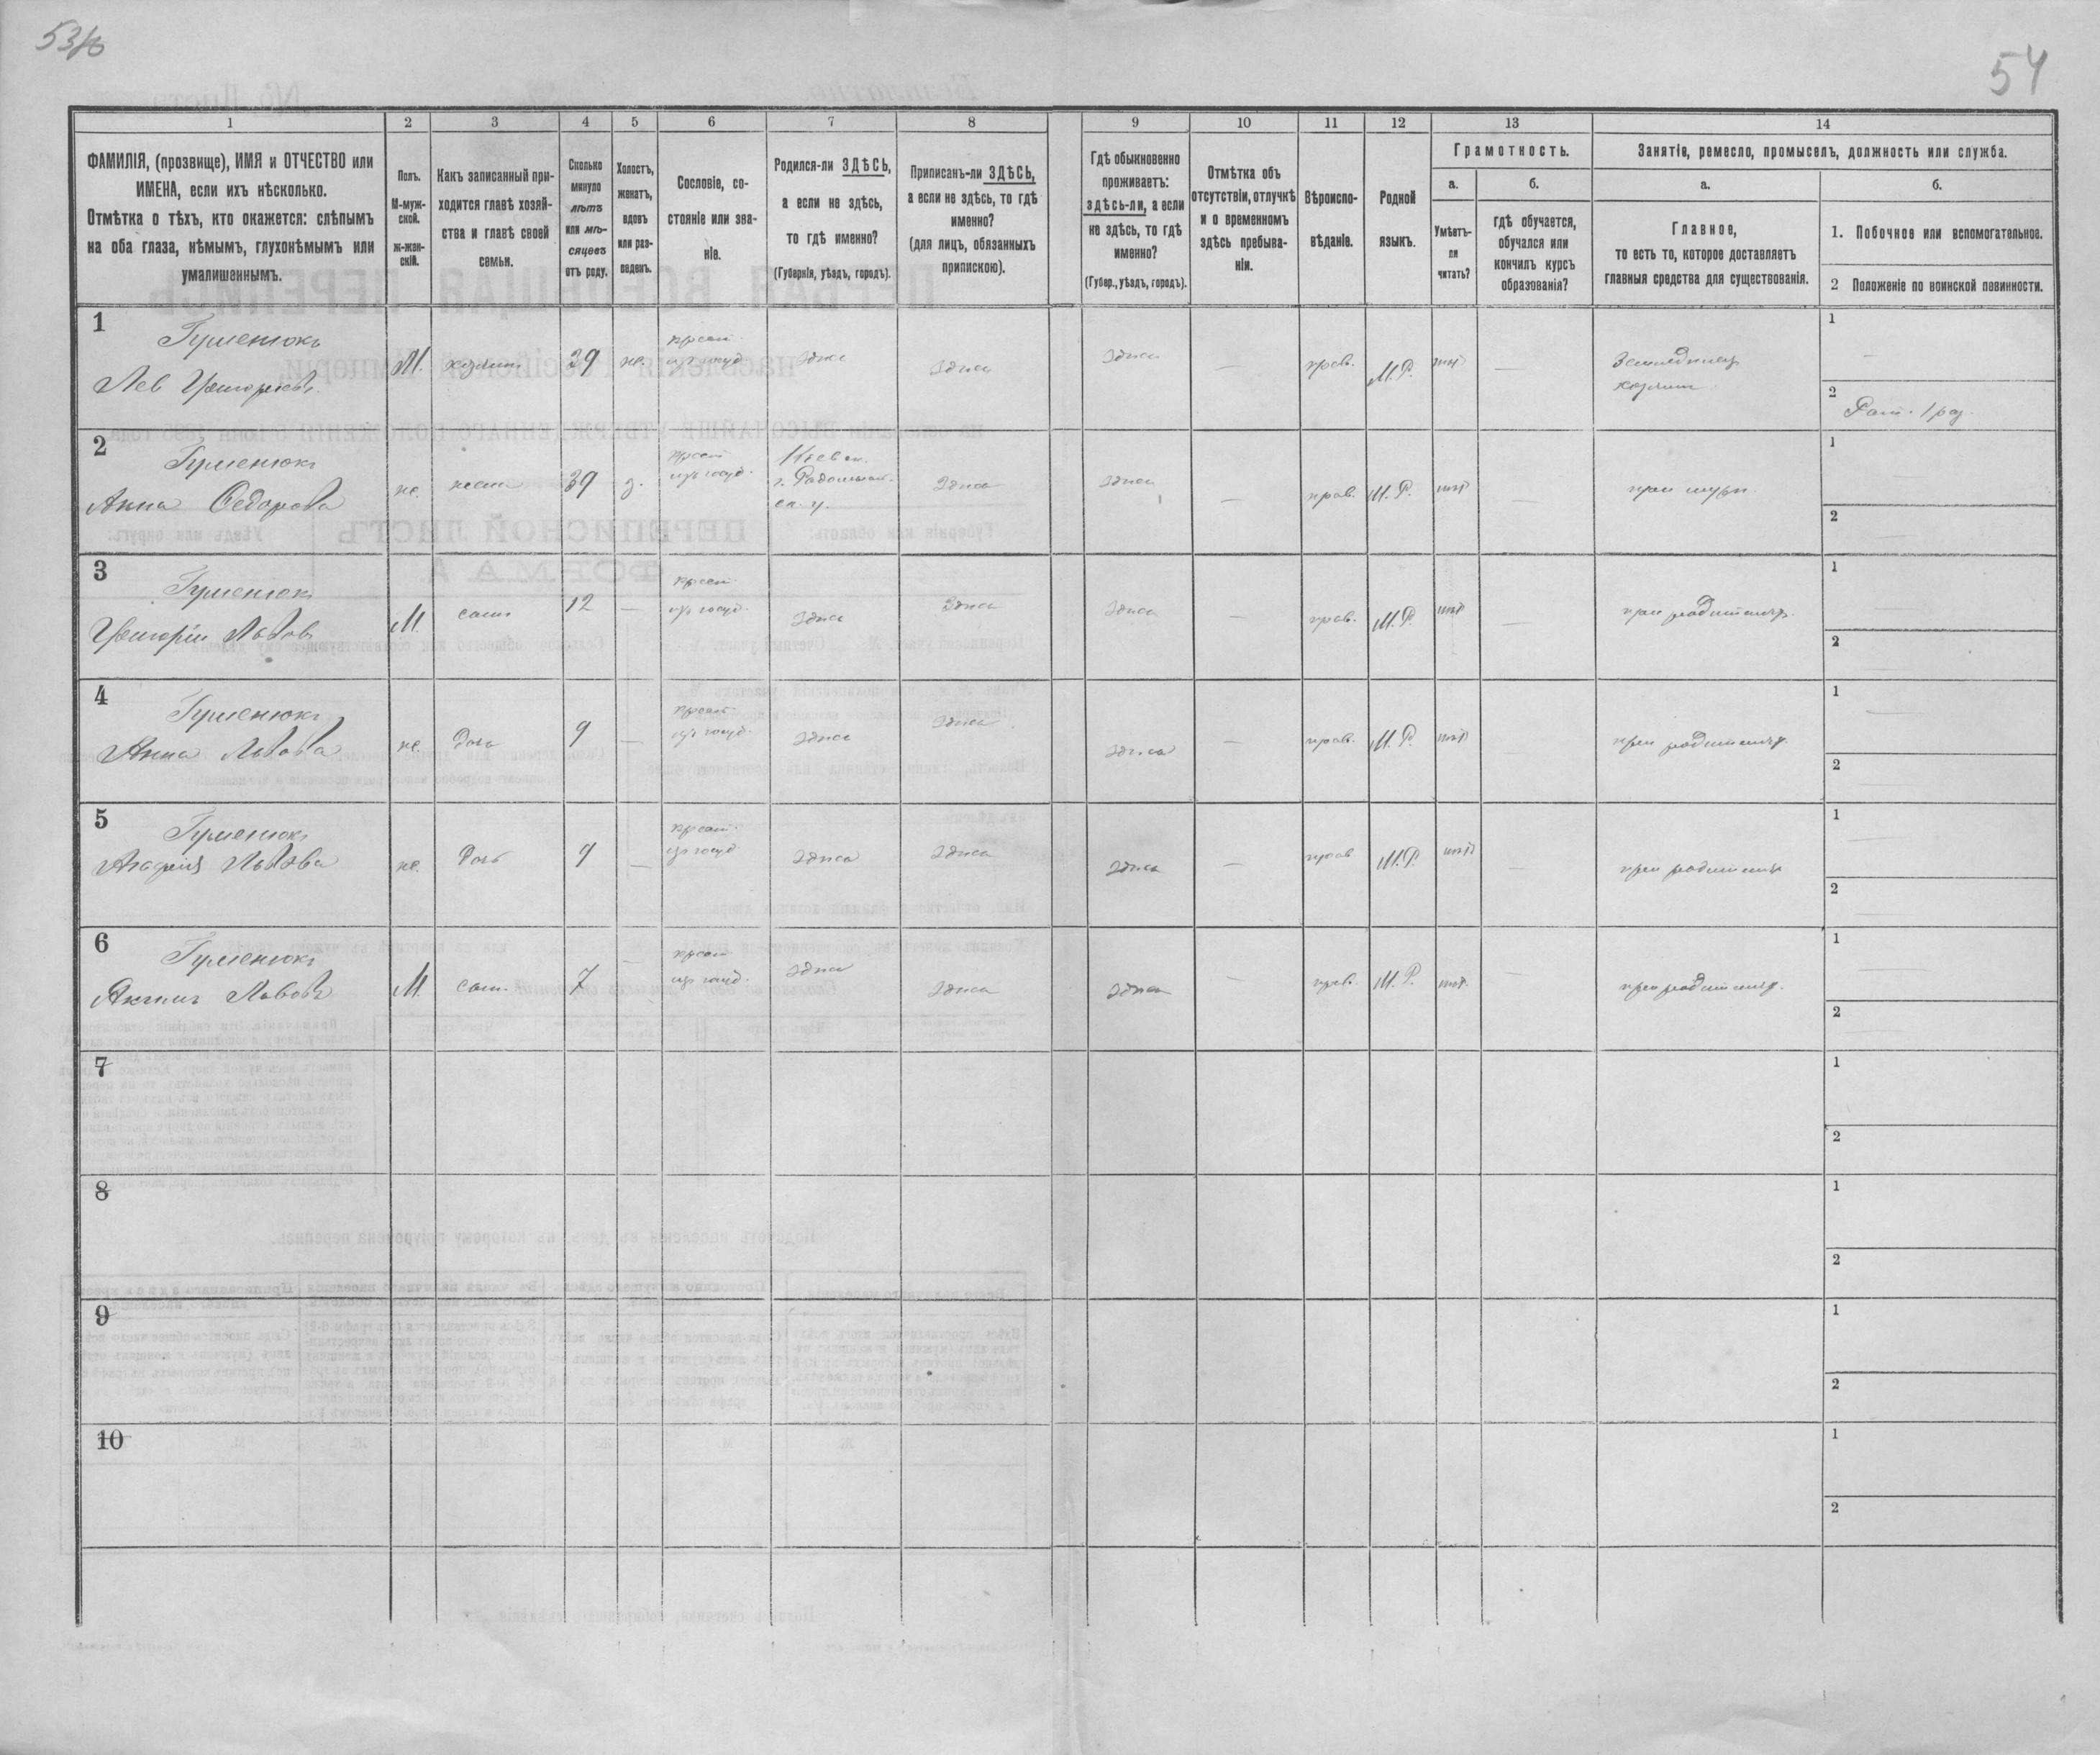 53 об
54
1
2
3
4
5
6
7
8
9
10
11
12
13
14
ФАМИЛІЯ, (прозвище), ИМЯ и ОТЧЕСТВО или
ИМЕНА, если ихъ нѣсколько.
Отмѣтка о тѣхъ, кто окажется: слѣпымъ
на оба глаза, нѣмымъ, глухонѣмымъ или
умалишеннымъ.
Полъ.
М-муж-
ской.
ж-жен-
скій.
Какъ записанный при-
ходится главѣ хозяй-
ства и главѣ своей
семьи.
Сколько
минуло
лѣтъ
или мѣ-
сяцевъ
отъ роду.
Холостъ,
женатъ,
вдовъ
или раз-
веденъ.
Сословіе, со-
стояніе или зва-
ніе.
Родился-ли ЗДѢСЬ,
а если не здѣсь,
то гдѣ именно?
(Губернія, уѣздъ, городъ).
Приписанъ-ли ЗДѢСЬ,
а если не здѣсь, то гдѣ
именно?
(для лицъ, обязанныхъ
припискою).
Гдѣ обыкновенно
проживаетъ:
здѣсь-ли, а если
не здѣсь, то гдѣ
именно?
(Губер., уѣздъ, городъ).
Отмѣтка объ
отсутствіи, отлучкѣ
и о временномъ
здѣсь пребыва-
ніи.
Вѣроиспо-
вѣданіе.
Родной
языкъ.
Грамотность.
а.
б.
Умѣетъ-
ли
читать?
гдѣ обучается,
обучался или
кончилъ курсъ
образованія?
Занятіе, ремесло, промыселъ, должность или служба.
а.
б.
Главное,
то есть то, которое доставляетъ
главныя средства для существованія.
1. Побочное или вспомогательное.
2 Положеніе по воинской повинности.
1
Гуменюкъ
Лев Григорьевъ
М.
хозяин
39
же.
крест.
из госуд.
Здесь
Здесь
Здесь
—
прав.
М.Р.
нѣт
—
Земледелец
хозяин
1
—
2
Рат. 1 раз.
2
Гуменюкъ
Анна Федорова
же.
жена
39
з.
крест.
из госуд.
Киевск.
г. Радомысл.
ск. у.
Здесь
Здесь
—
прав.
М.Р.
нѣт
—
при муже
1
2
3
Гуменюкъ
Григорій Львов
М.
сын
12
—
крест.
из госуд.
Здесь
Здесь
Здесь
—
прав.
М.Р.
нѣт
—
при родителях.
1
2
4
Гуменюкъ
Анна Львова
же.
дочь
9
—
крест.
из госуд.
Здесь
Здесь
Здесь
—
прав.
М.Р.
нѣт
—
при родителях.
1
2
5
Гуменюкъ
Агафия Львова
же.
дочь
9
—
крест.
из госуд.
Здесь
Здесь
Здесь
—
прав
М.Р.
нѣт
—
при родителях
1
2
6
Гуменюкъ
Львовъ
М.
сын.
7
—
крест.
из госуд.
Здесь
Здесь
Здесь
—
прав.
М.Р.
нѣт.
—
при родителях.
1
2
7
1
2
8
1
2
9
1
2
10
1
2